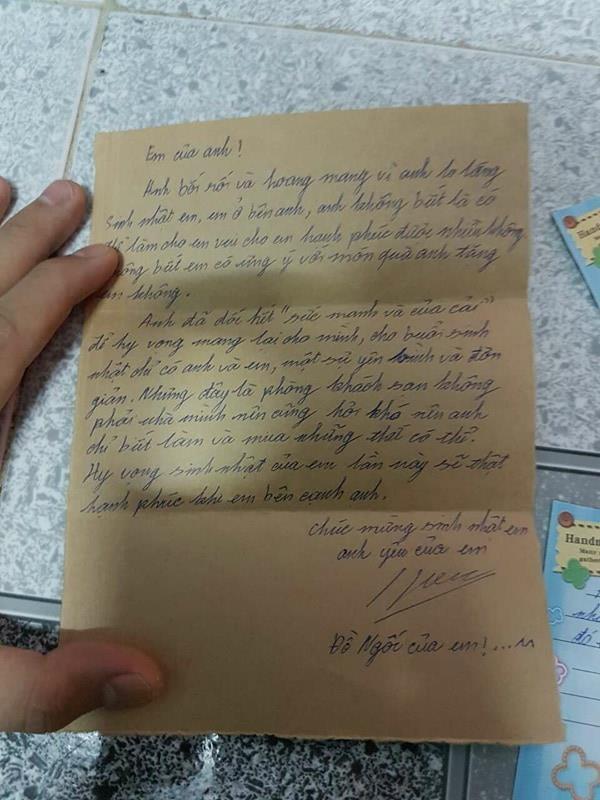 Em của anh!
Anh bối rối và hoang mang vì anh lo lắng
sinh nhật em, em ở bên anh, anh không biết là có
để làm cho em vui cho em hạnh phúc được nhiều không
không biết em có ưng ý với món quà anh tặng
em không.
Anh đã dốc hết "sức mạnh và của cải"
để hy vọng mang lại cho mình, cho buổi sinh
nhật chỉ có anh và em, một sự yên bình và đơn
giản. Nhưng đây là phòng khách sạn không
phải nhà mình nên cũng hơi khó nên anh
chỉ biết làm và mua những thứ có thể.
Hy vọng sinh nhật của em lần này sẽ thật
hạnh phúc khi em bên cạnh anh.
Chúc mừng sinh nhật em
anh yêu của em
Đồ Ngốc của em!...^^
Handm
Many
gathe
nh
đó